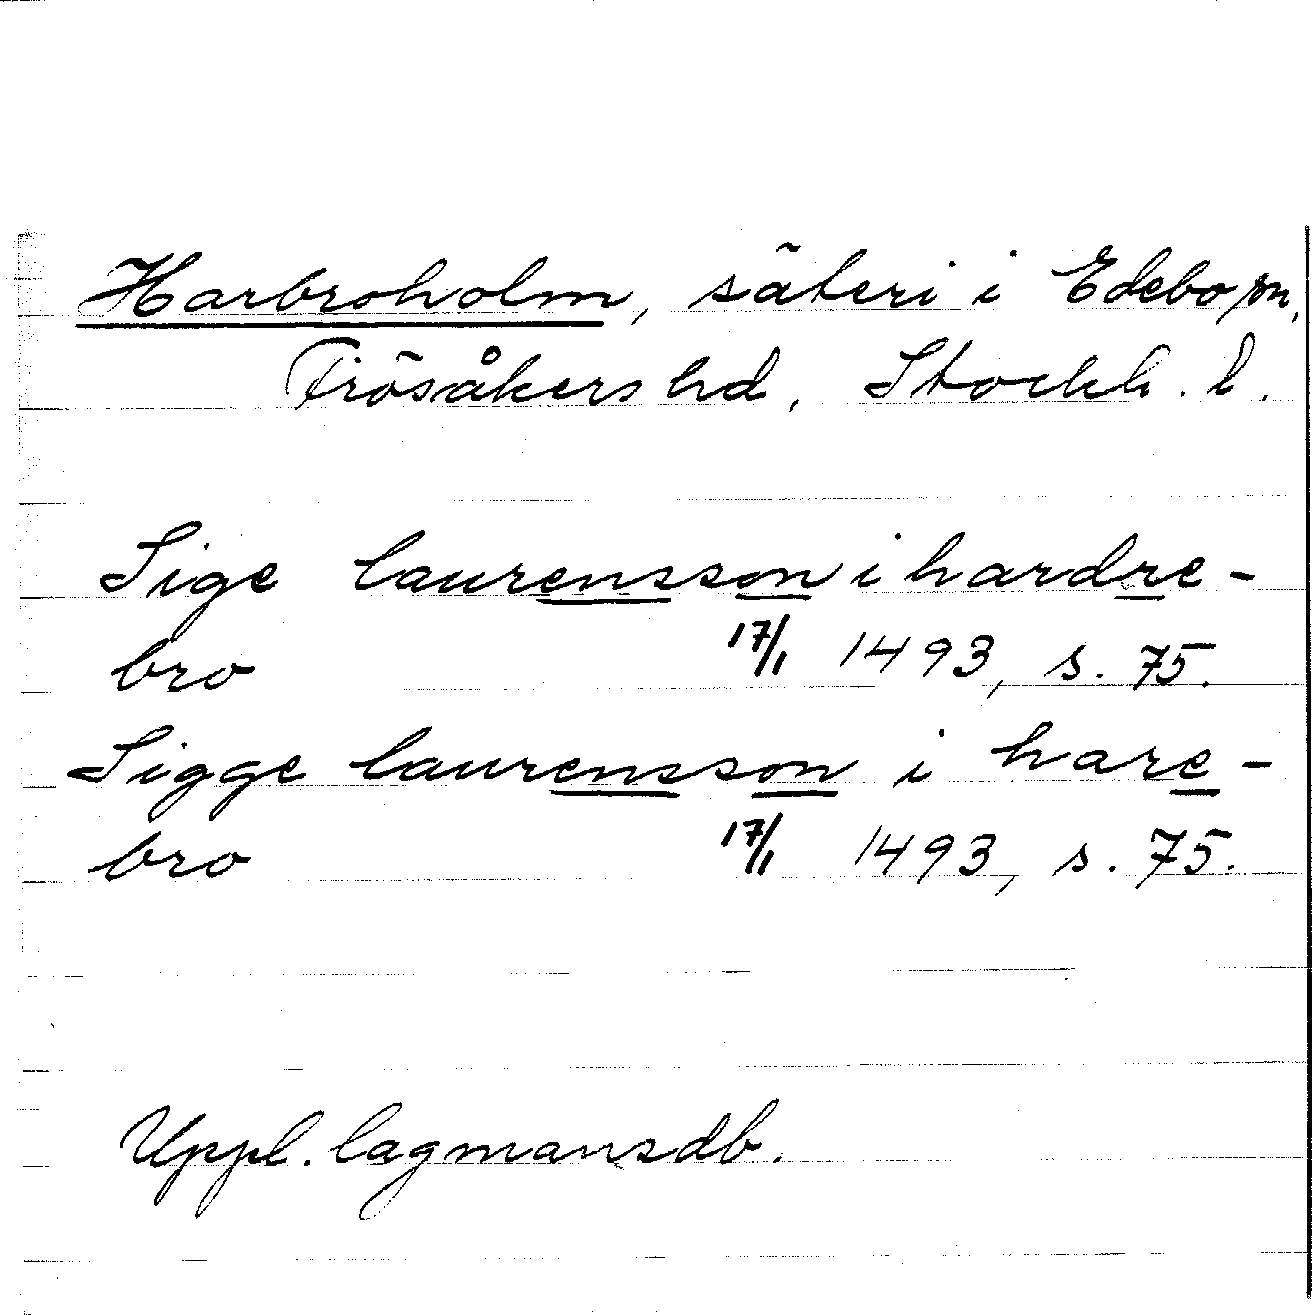 Harbroholm, säteri i Edebo sn,
Frösåkers hd, Stockh. l.
Sige laurensson i hardre-
bro 17/1 1493, s. 75.
Sigge laurensson i hare-
bro 17/1 1493, s. 75.
Uppl. lagmansdb.